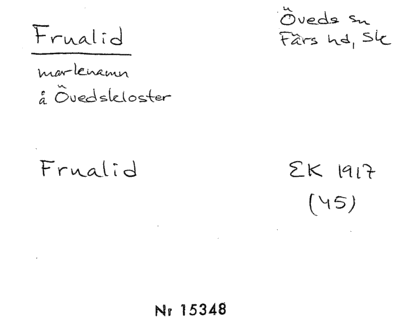 Frualid
Öveds sn
Färs hd, Sk
marknamn
å Övedskloster
Frualid
EK 1917
(45)
Nr 15348